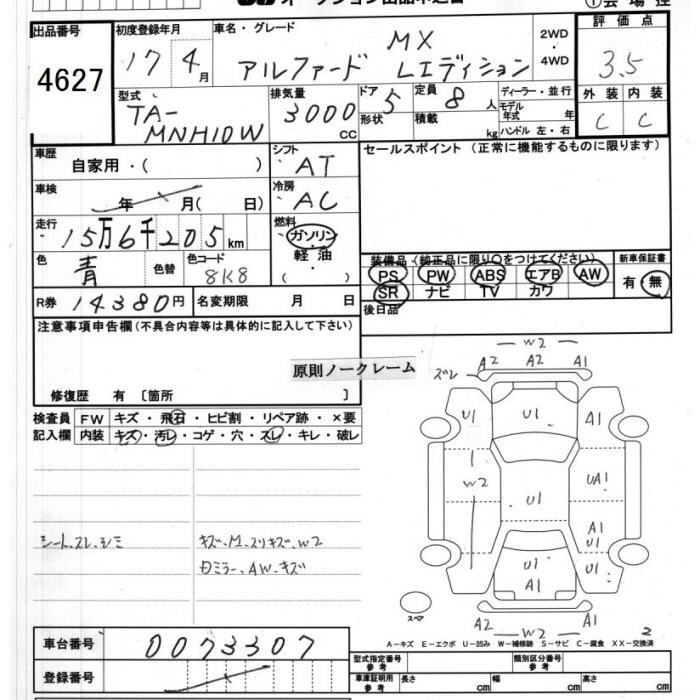 出品番号 初度登録年月 車名・グレード 2WD・4WD 評価点
4627 17 4月 アルファード MX Lエディション 3.5
型式 TA-MNH10W 排気量 3000 cc ドア 5 形状 定員 8 人 積載 kg ディーラー・並行 モデル年式 年 ハンドル 左・右 外装 内装
C C
車歴 自家用・( ) シフト AT セールスポイント(正常に機能するものに限ります)
車検 年 月( 日) 冷房 AC
走行 15万6千205km 燃料 ガソリン・軽油・( )
色 青 色替 色コード 8K8
装備品(純正品に限り〇をつけてください) 新車保証書
PS PW ABS エアB AW 有・無
SR ナビ TV カワ
R券 14380円 名変期限 月 日 後日品
注意事項申告欄(不具合内容等は具体的に記入して下さい)
原則ノークレーム
修復歴 有 〔箇所 〕
検査員 FW キズ・飛石・ヒビ割・リペア跡・×要
記入欄 内装 キズ・汚レ・コゲ・穴・スレ・キレ・破レ
シート、スレ、シミ キズ、M、スリキズ、W2
ミラー、AW、キズ
W2
ズレ A2 A2 A1
U1 U1 A1
W2 U1 UA1
A1
U1
U1 U1
A1
A2 W2 A1
スペア 2
A-キズ E-エクボ U-凹み W-補修跡 S-サビ C-腐食 XX-交換済
車台番号 0073307
登録番号
型式指定番号 参考 類別区分番号 参考
車庫証明用 参考 長さ cm 幅 cm 高さ cm